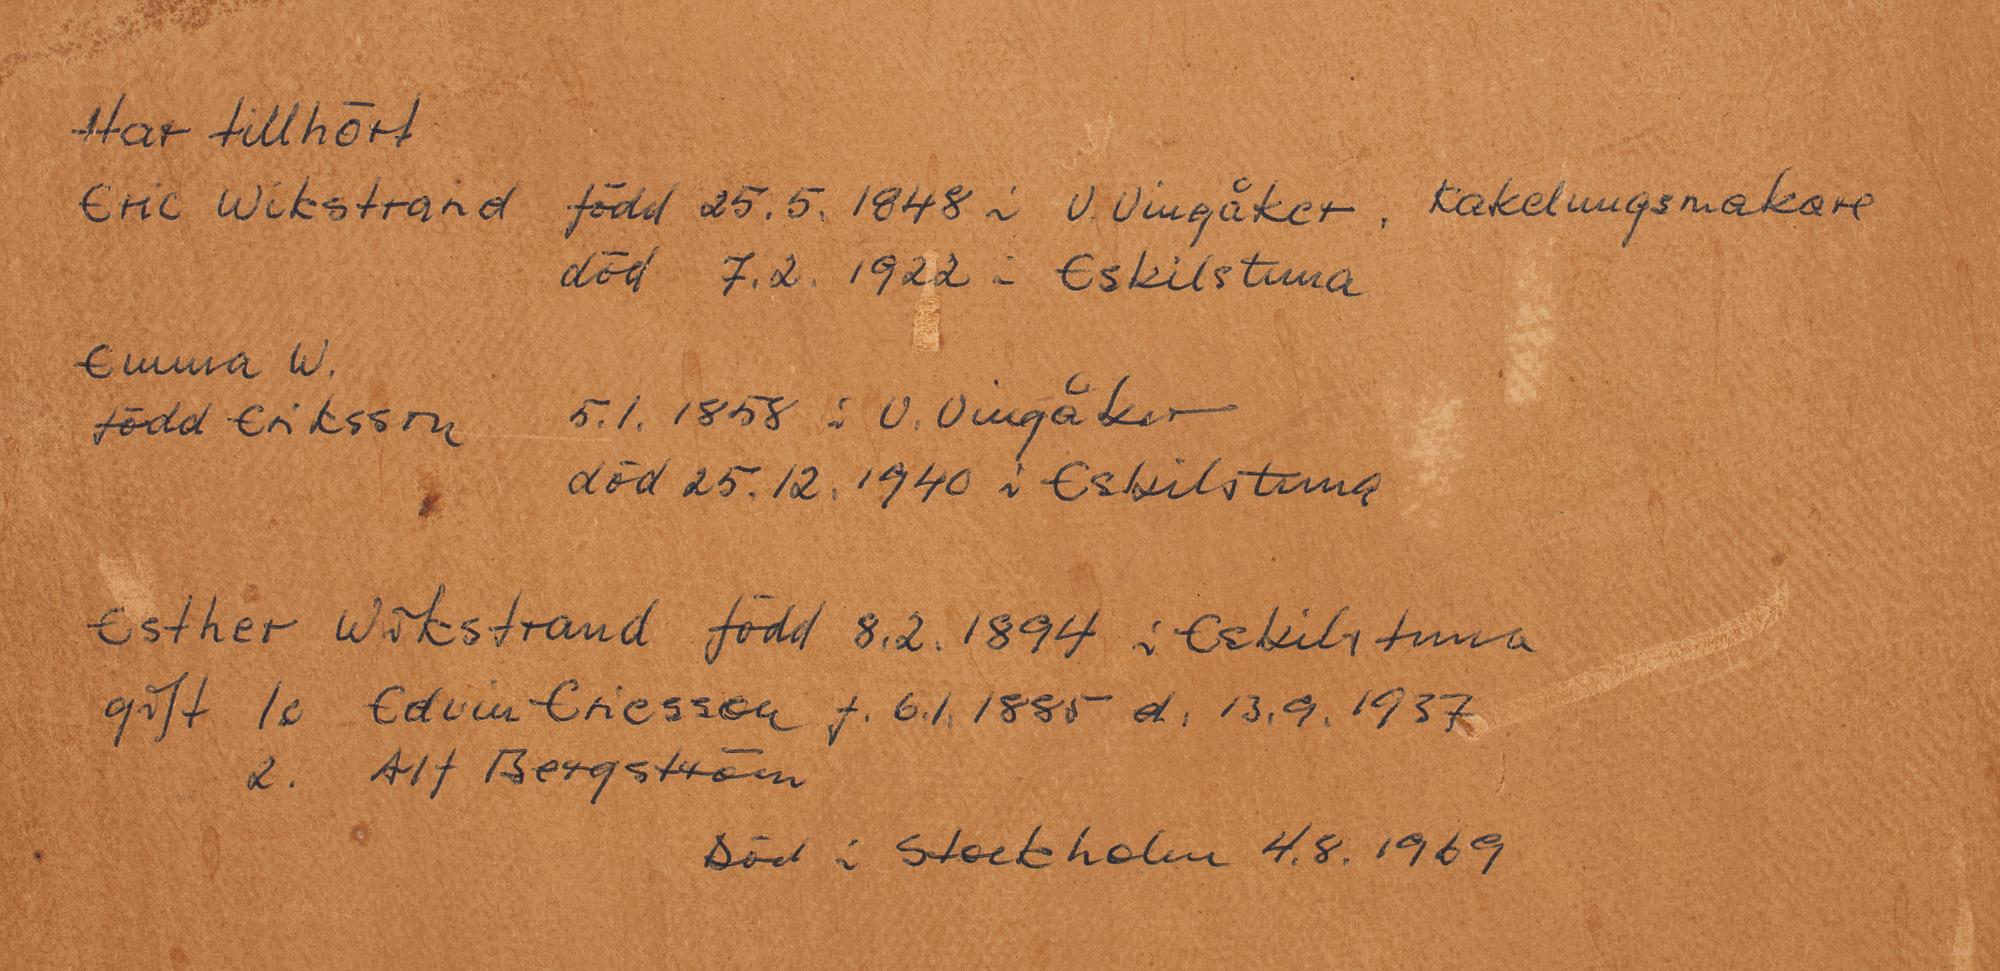 Har tillhört
Eric Wikstrand född 25.5. 1848 i V. Vingåker, Kakelungsmakare
död 7.2. 1922 i Eskilstuna
Emma W.
född Eriksson 5.1. 1858 i V. Vingåker
död 25.12. 1940 i Eskilstuna
Esther Wikstrand född 8.2. 1894 i Eskilstuna
gift 1. Edvin Ericsson f. 6.1. 1885 d. 13.9. 1937
2. Alf Bergström
Död i Stockholm 4.8. 1969